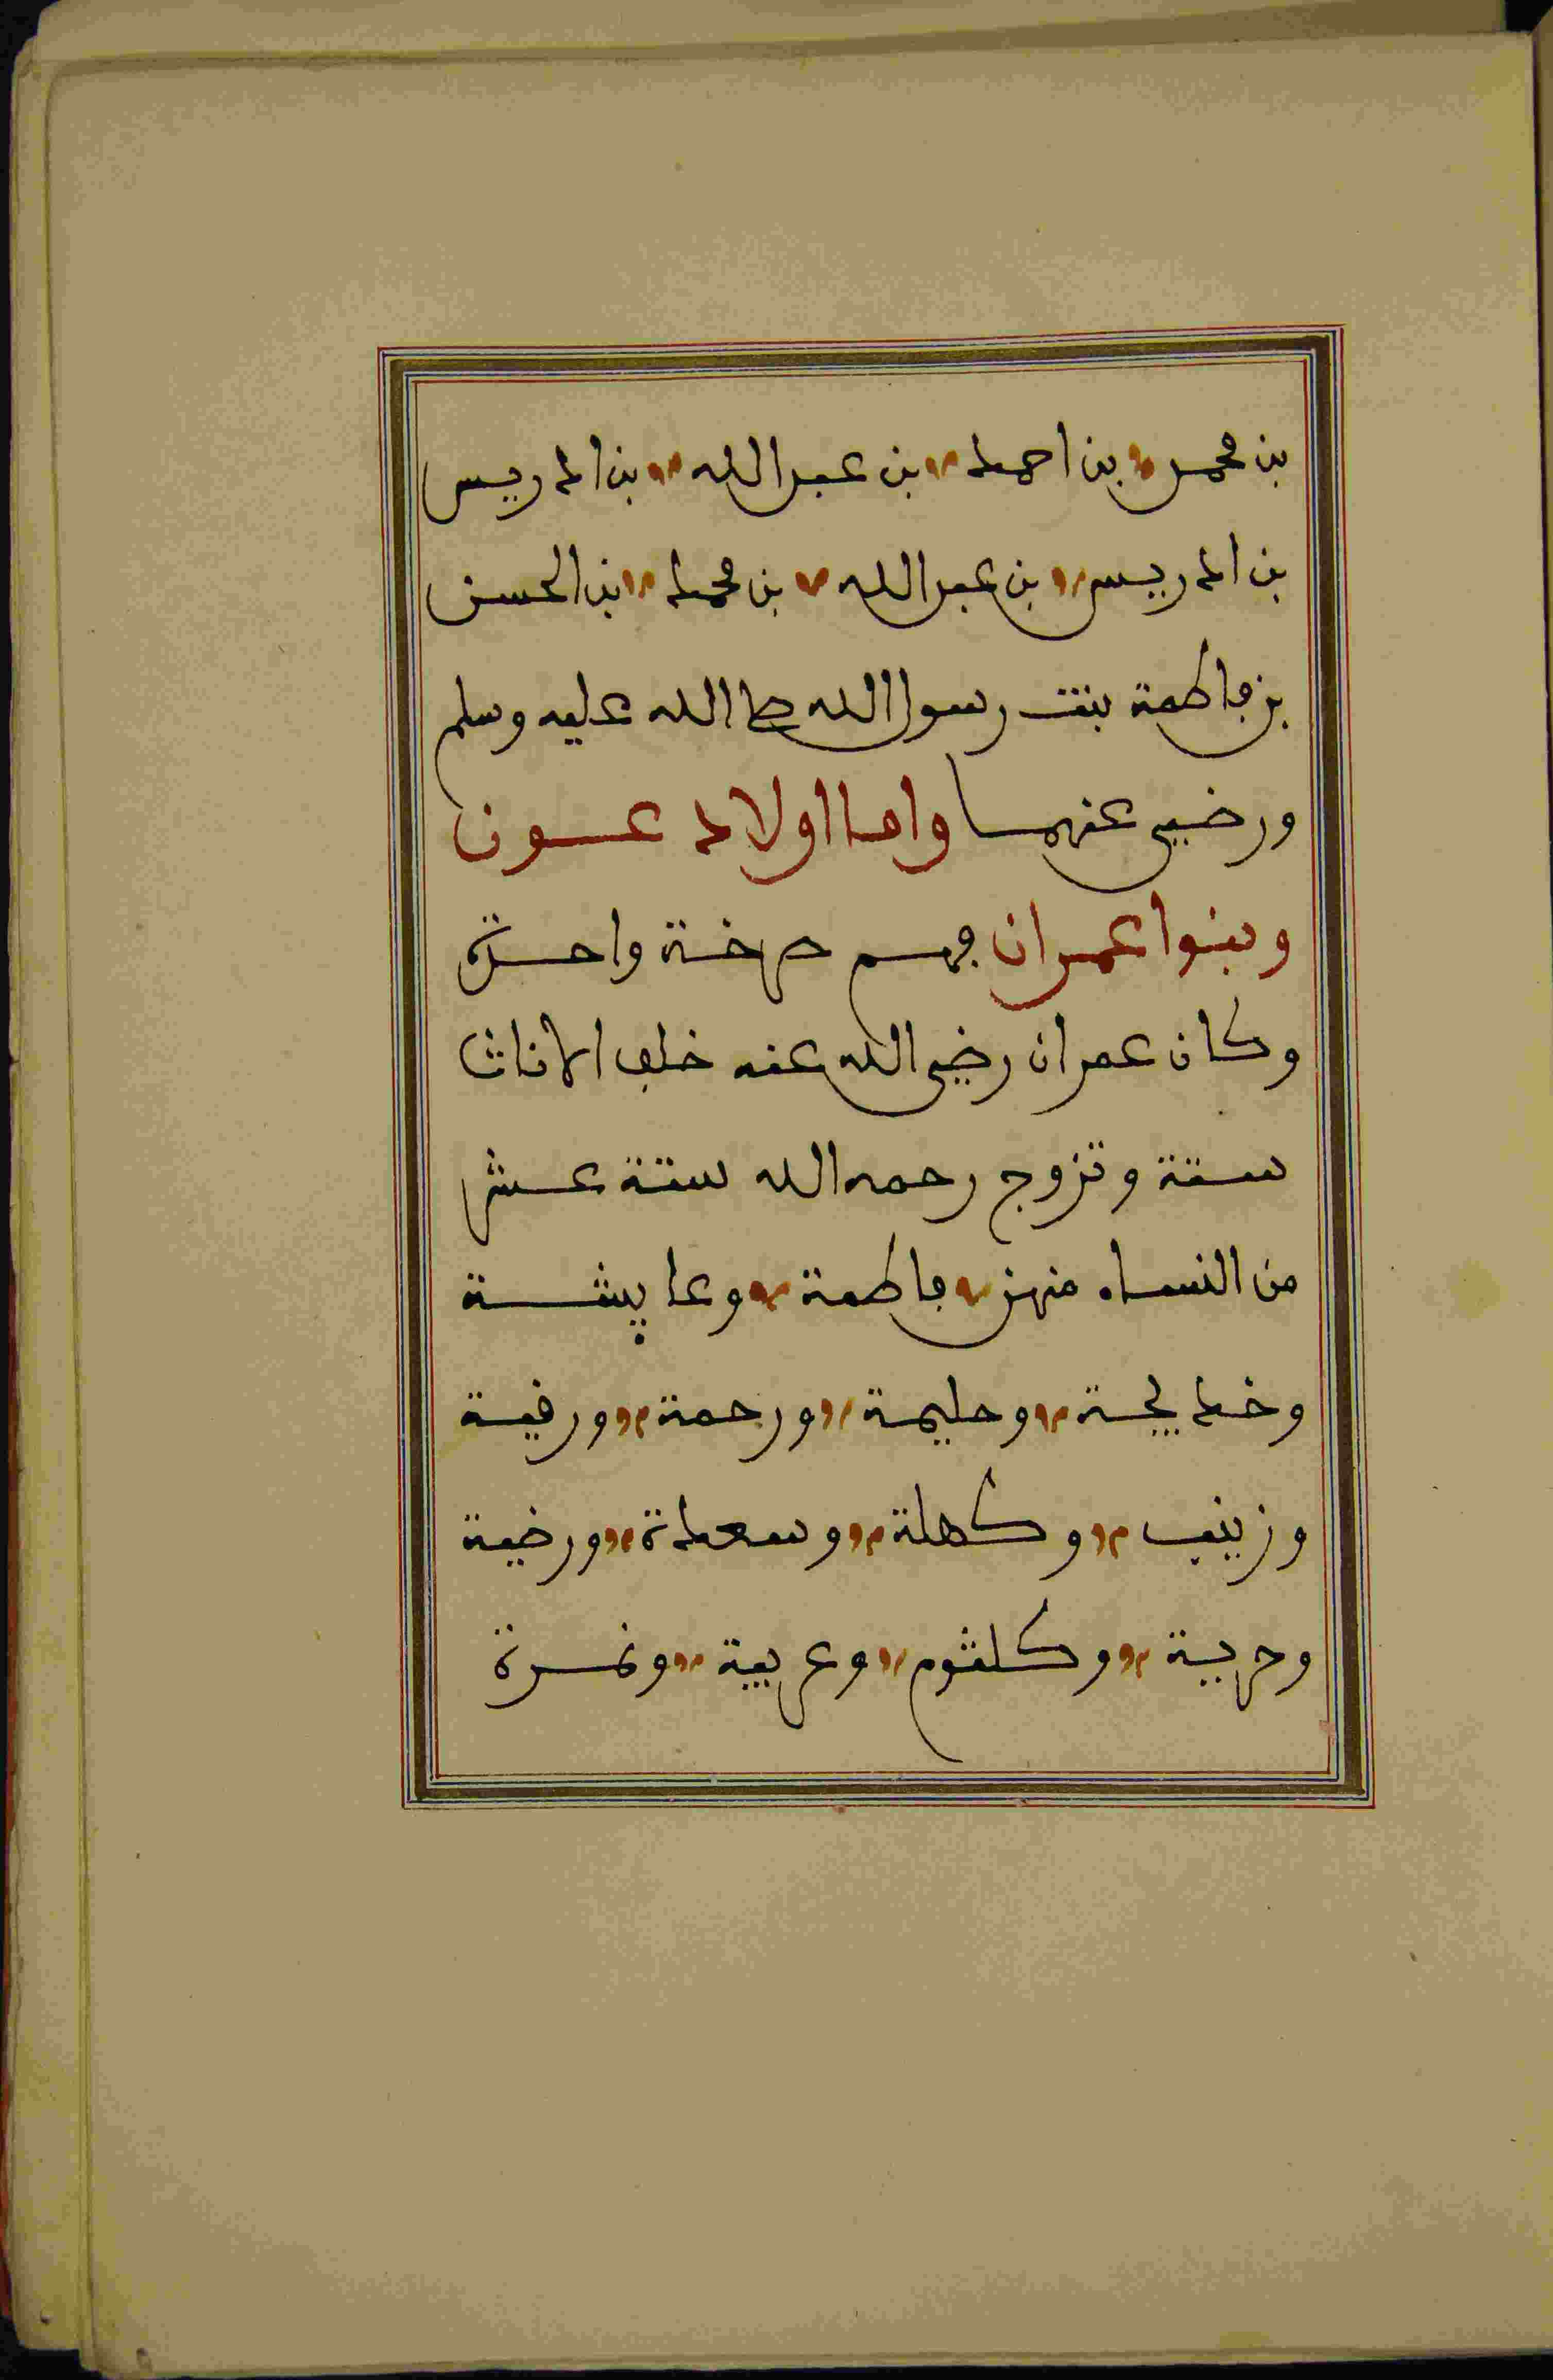 بن محمد بن احمد بن عبد الله بن ادريس
بن ادريس بن عبد الله بن محمد بن الحسن
بن فاطمة بنت رسول الله صلى الله عليه وسلم
ورضي عنهما واما اولاد عون
وبنوا عمران فهم صرخة واحدة
وكان عمران رضي الله عنه خلف الاناث
ستة وتزوج رحمه الله ستة عشر
من النساء منهن فاطمة وعايشة
وخديجة وحليمة ورحمة ورقية
وزينب وكهلة وسعدة ورضية
وحربية وكلثوم وعربية ونمرة